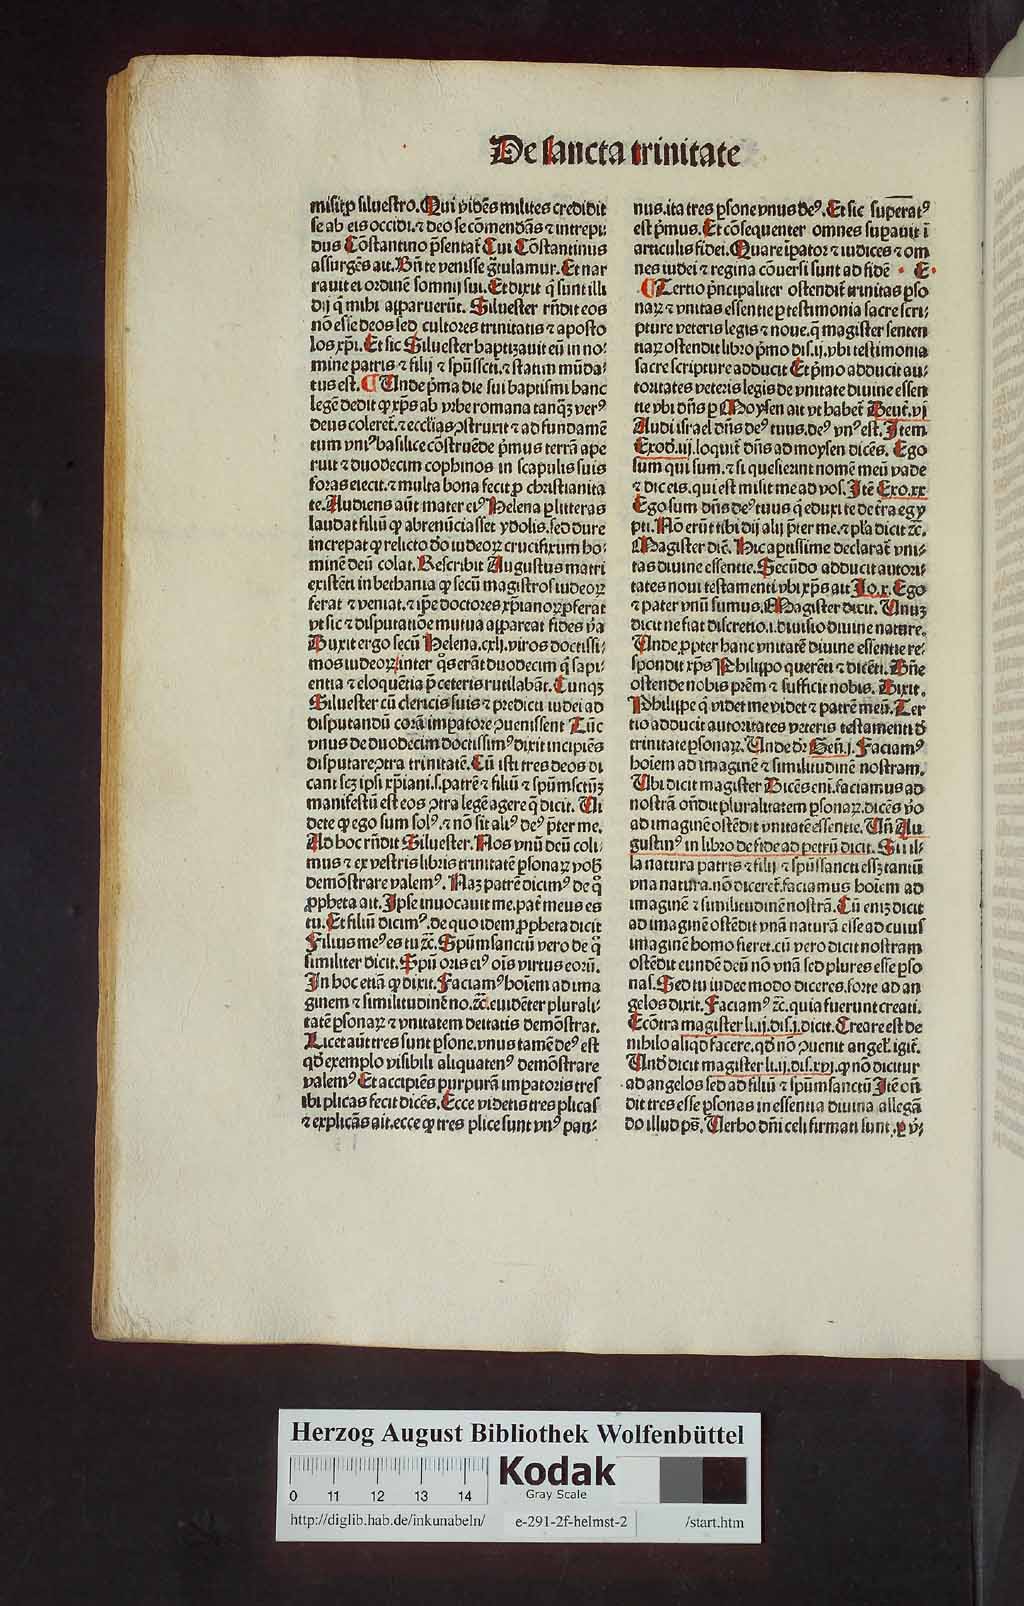 De sancta trinitate
misit ꝓ silvestro. Qui vidēs milites credidit
se ab eis occidi. ⁊ deo se cōmendās ⁊ intrepi-
dus Cōstantino p̄sentat᷑ Cui Cōstantinus
assurgēs ait. Bn̄te venisse gr̄tulamur. Et nar
rauit ei ordinē somnij sui. Et dixit q̄ sunt illi
dij q̄ mihi apparuerūt. Siluester rn̄dit eos
nō esse deos sed cultores trinitatis ⁊ aposto
los xp̄i. Et sic Siluester baptizauit eū in no-
mine patris ⁊ filij ⁊ spūsscti. ⁊ statim mūda-
tus est. ¶ Unde p̄ma die sui baptismi hanc
legē dedit ꝙ xp̄s ab vrbe romana tanqꝫ verꝰ
deus coleret᷑. ⁊ ecclīas ꝯstruxit ⁊ ad fundamē
tum vniꝰ basilice cōstruēde p̄mus terrā ape
ruit ⁊ duodecim cophinos in scapulis suis
foras eiecit. ⁊ multa bona fecit ꝓ christianita
te. Audiens aūt mater eiꝰ Helena ꝑ litteras
laudat filiū ꝙ abrenūciasset ydolis. sed dure
increpat ꝙ relicto d̄o iudeoꝝ crucifixum ho-
minē deū colat. Rescribit Augustus matri
existēti in bethania ꝙ secū magistros iudeoꝝ
ferat ⁊ veniat. ⁊ ip̄e doctores xp̄ianoꝝ ꝓferat
vt sic ⁊ disputatiōe mutua appareat fides v̄a
Duxit ergo secū Helena. cxlj. viros doctissi-
mos iudeoꝝ inter q̊s erāt duodecim q̄ sapi-
entia ⁊ eloquētia p̄ ceteris rutilabāt. Cunqꝫ
Siluester cū clericis suis ⁊ predicti iudei ad
disputandū corā impatore ꝯuenissent Tūc
vnus de duodecim doctissimꝰ dixit incipiēs
disputare ꝯtra trinitatē. Cū isti tres deos di
cant scꝫ ipsi xp̄iani. s. patrē ⁊ filiū ⁊ spūmsctūꝫ
manifestū est eos ꝯtra legē agere q̄ dicit. Vi
dete ꝙ ego sum solꝰ. ⁊ nō sit aliꝰ deꝰ p̄ter me.
Ad hoc rn̄dit Siluester. Nos vnū deū coli-
mus ⁊ ex vestris libris trinitatē ꝑsonaꝝ vob̄
demōstrare valemꝰ. Naꝫ patrē dicimꝰ de q̊
ꝓpheta ait. Ipse inuocauit me. pat᷑ meus es
tu. Et filiū dicimꝰ. de quo idem ꝓpheta dicit
Filius meꝰ es tu ⁊c̄. Spūmsanctū vero de q̊
similiter dicit. Spū oris eiꝰ oīs virtus eorū.
In hoc etiā ꝙ dixit. Faciamꝰ hoīem ad ima
ginem ⁊ similitudinē no. ⁊c̄. euidēter plurali-
tatē ꝑsonaꝝ ⁊ vnitatem deitatis demōstrat.
Licet aūt tres sunt ꝑsone. vnus tamē deꝰ est
qd̄ exemplo visibili aliquatenꝰ demōstrare
valemꝰ Et accipiēs purpurā impatoris tres
ibi plicas fecit dicēs. Ecce videtis tres plicas
⁊ explicās ait. ecce ꝙ tres plice sunt vnꝰ pan-
nus. ita tres ꝑsone vnus deꝰ. Et sic superatꝰ
est p̄mus. Et cōsequenter omnes supauit ī
articulis fidei. Quare īpator ⁊ iudices ⁊ om
nes iudei ⁊ regina cōuersi sunt ad fidē · E·
¶ Tertio p̄ncipaliter ostendit᷑ trinitas ꝑso
naꝝ ⁊ vnitas essentie ꝑ testimonia sacre scri-
pture veteris legis ⁊ noue. q̄ magister senten
tiaꝝ ostendit libro p̄mo dis. ij. vbi testimonia
sacre scripture adducit Et p̄mo adducit au-
toritates veteris legis de vnitate diuine essen
tie vbi dn̄s ꝑ Moysen ait vt habet᷑ Deut᷑. vj
Audi israel dn̄s deꝰ tuus. deꝰ vnꝰ est. Item
Exod. iij. loquit᷑ dn̄s ad moysen dicēs. Ego
sum qui sum. ⁊ si quesierint nomē meū vade
⁊ dic eis. qui est misit me ad vos. Itē Exo. xx
Ego sum dn̄s deꝰ tuus q̄ eduxi te de t᷑ra egy
pti. Nō erūt tibi dij alij p̄ter me. ⁊ pl̄a dicit ⁊c̄.
Magister dic̄. Hic aptissime declarat᷑ vni-
tas diuine essentie. Secūdo adducit autori-
tates noui testamenti vbi xp̄s ait Jo. x. Ego
⁊ pater vnū sumus. Magister dicit. Unuꝫ
dicit ne fiat discretio. i. diuisio diuine nature.
Unde ꝓpter hanc vnitatē diuine essentie re-
spondit xp̄s Philippo querēti ⁊ dicēti. Dn̄e
ostende nobis prēm ⁊ sufficit nobis. Dixit.
Philippe q̄ videt me videt ⁊ patrē meū. Ter
tio adducit autoritates veteris testamenti d̄
trinitate ꝑsonaꝝ. Unde dr̄ Gen̄. j. Faciamꝰ
hoīem ad imaginē ⁊ similitudinē nostram.
Ubi dicit magister Dicēs eni. faciamus ad
nostrā on̄dit pluralitatem ꝑsonaꝝ. dicēs v̊o
ad imaginē ostēdit vnitatē essentie. Un̄ Au
gustinꝰ in libro de fide ad petrū dicit. Si il-
la natura patris ⁊ filij ⁊ spūssancti esset tantū
vna natura. nō diceret᷑. faciamus hoīem ad
imaginē ⁊ similitudinē nostrā. Cū enīꝫ dicit
ad imaginē ostēdit vnā naturā esse ad cuius
imaginē homo fieret. cū vero dicit nostram
ostēdit eundē deū nō vnā sed plures esse ꝑso
nas. Sed tu iudee modo diceres. forte ad an
gelos dixit. Faciamꝰ ⁊c̄. quia fuerunt creati.
Ecōtra magister li. ij. dis. j. dicit. Creare est de
nihilo aliqd facere. qd̄ nō ꝯuenit angel᷑. igit᷑.
Und̄ dicit magister li. ij. dis. xvj. ꝙ nō dicitur
ad angelos sed ad filiū ⁊ spūmsanctū Itē on̄
dit tres esse ꝑsonas in essentia diuina allegā
do illud ps̄. Verbo dn̄i celi firmati sunt. ꝑ v̄-
Herzog August Bibliothek Wolfenbüttel
0 11 12 13 14
Kodak
Gray Scale
http://diglib.hab.de/inkunabeln/ e-291-2f-helmst-2 /start.htm